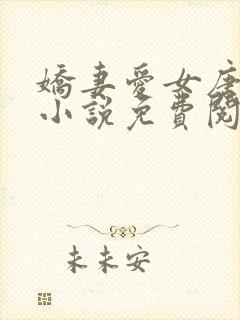 嬌妻愛女唐
小說免費閱
未未安